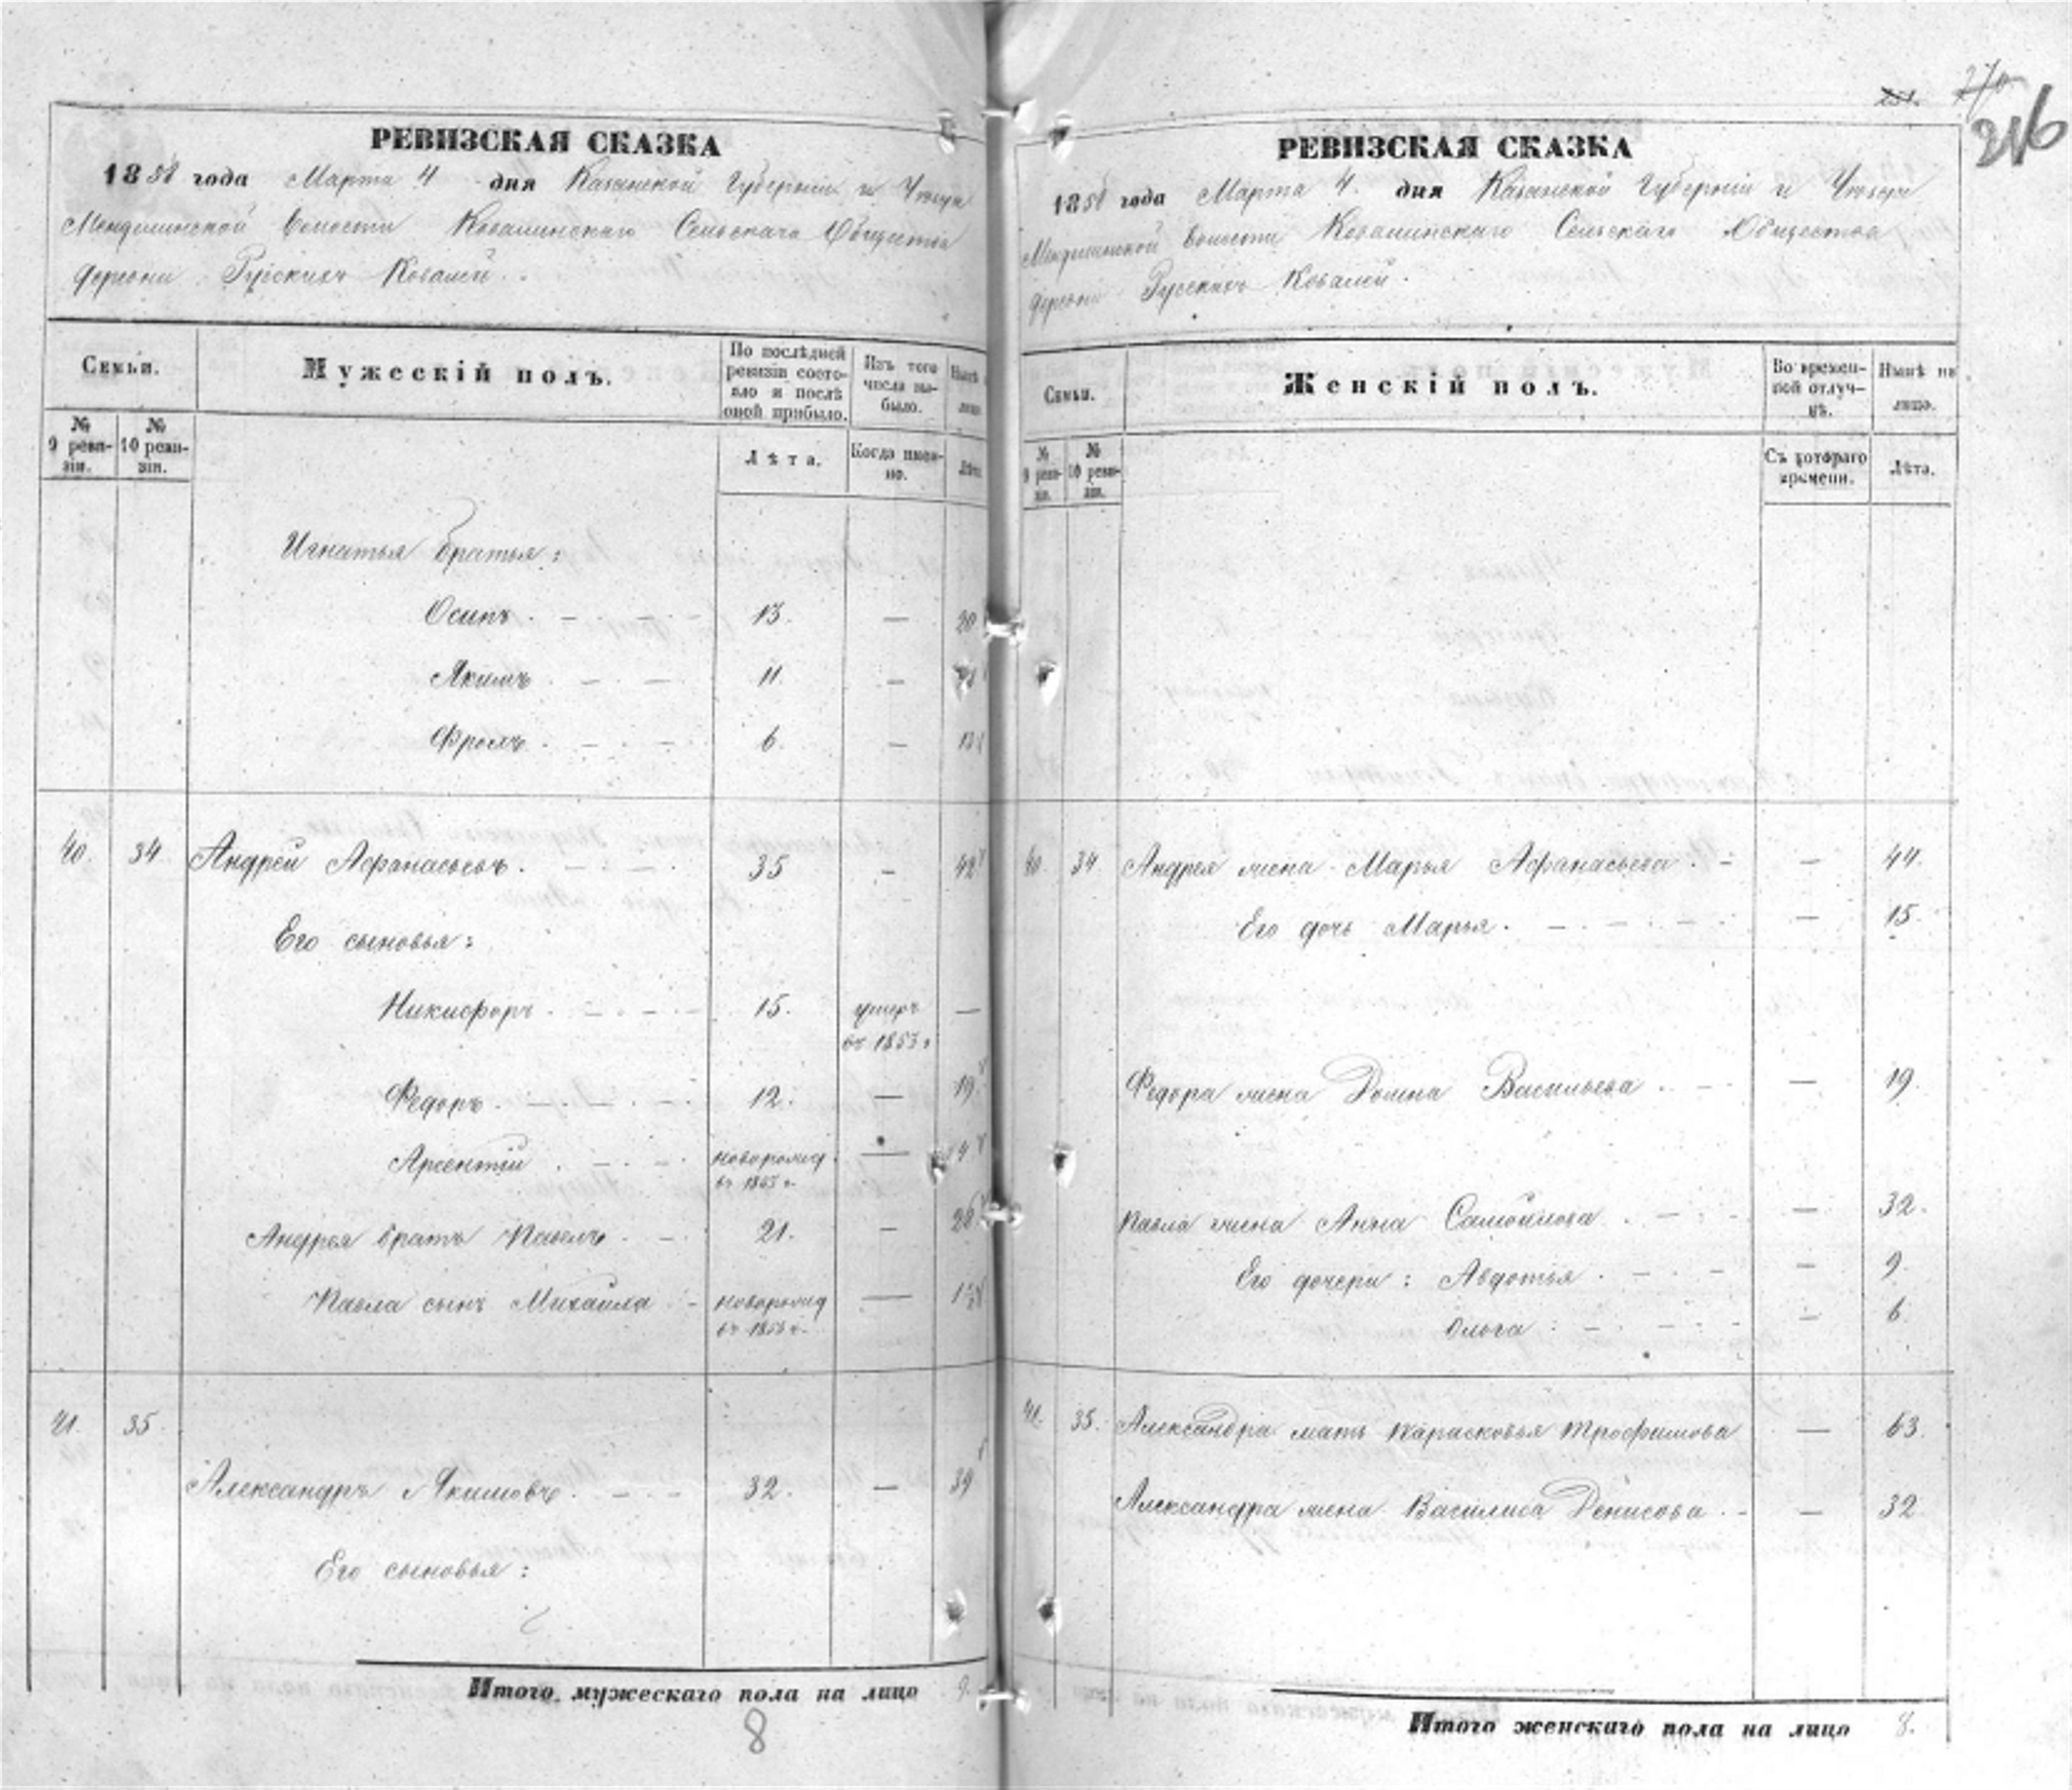 216
РЕВИЗСКАЯ СКАЗКА
1858 года Марта 4 дня Казанской Губерніи и Уезда
волости Ковалинскаго Сельскаго Общества
деревни Русскихъ Ковалей.
Семьи.
Мужескій полъ.
По послѣдней ревизіи состояло и послѣ оной прибыло.
Изъ того числа выбыло.
Нынѣ лицо
№ 9 ревизіи.
№ 10 ревизіи.
Лѣта.
Когда именно.
Лѣта
Игнатья братья:
Осипъ. 13. — 20
Якимъ 11. —
Фролъ. 6. — 13
40. 34 Андрей Афанасьевъ. 35 — 42
Его сыновья:
Никифоръ. 15. умеръ —
въ 1853 г
Федоръ. 12. — 19
Арсентій новорожд. —
Андрея братъ Павелъ. 21. — 28
Павла сынъ Михайла новорожд —
41. 35.
Александръ Якимовъ. 32. — 39
Его сыновья:
Итого мужескаго пола на лицо 9.
8
РЕВИЗСКАЯ СКАЗКА
1858 года Марта 4. дня Казанской Губерніи и Уезда
волости Ковалинскаго Сельскаго Общества
деревни Русскихъ Ковалей.
Семьи.
Женскій полъ.
Во временной отлучкѣ.
Нынѣ на лицо.
№ 9 ревизіи.
№ 10 ревизіи.
Съ котораго времени.
Лѣта.
40 34 Андрея жена Марья Афанасьева. — 44.
Его дочь Марья. — 15.
Федора жена Домна Васильева. — 19
Павла жена Анна Самойлова. — 32.
Его дочери: Авдотья. — 9.
Ольга — 6.
41. 35. Александра мать Парасковья Трофимова — 63.
Александра жена Василиса Денисова. — 32
Итого женскаго пола на лицо 8.